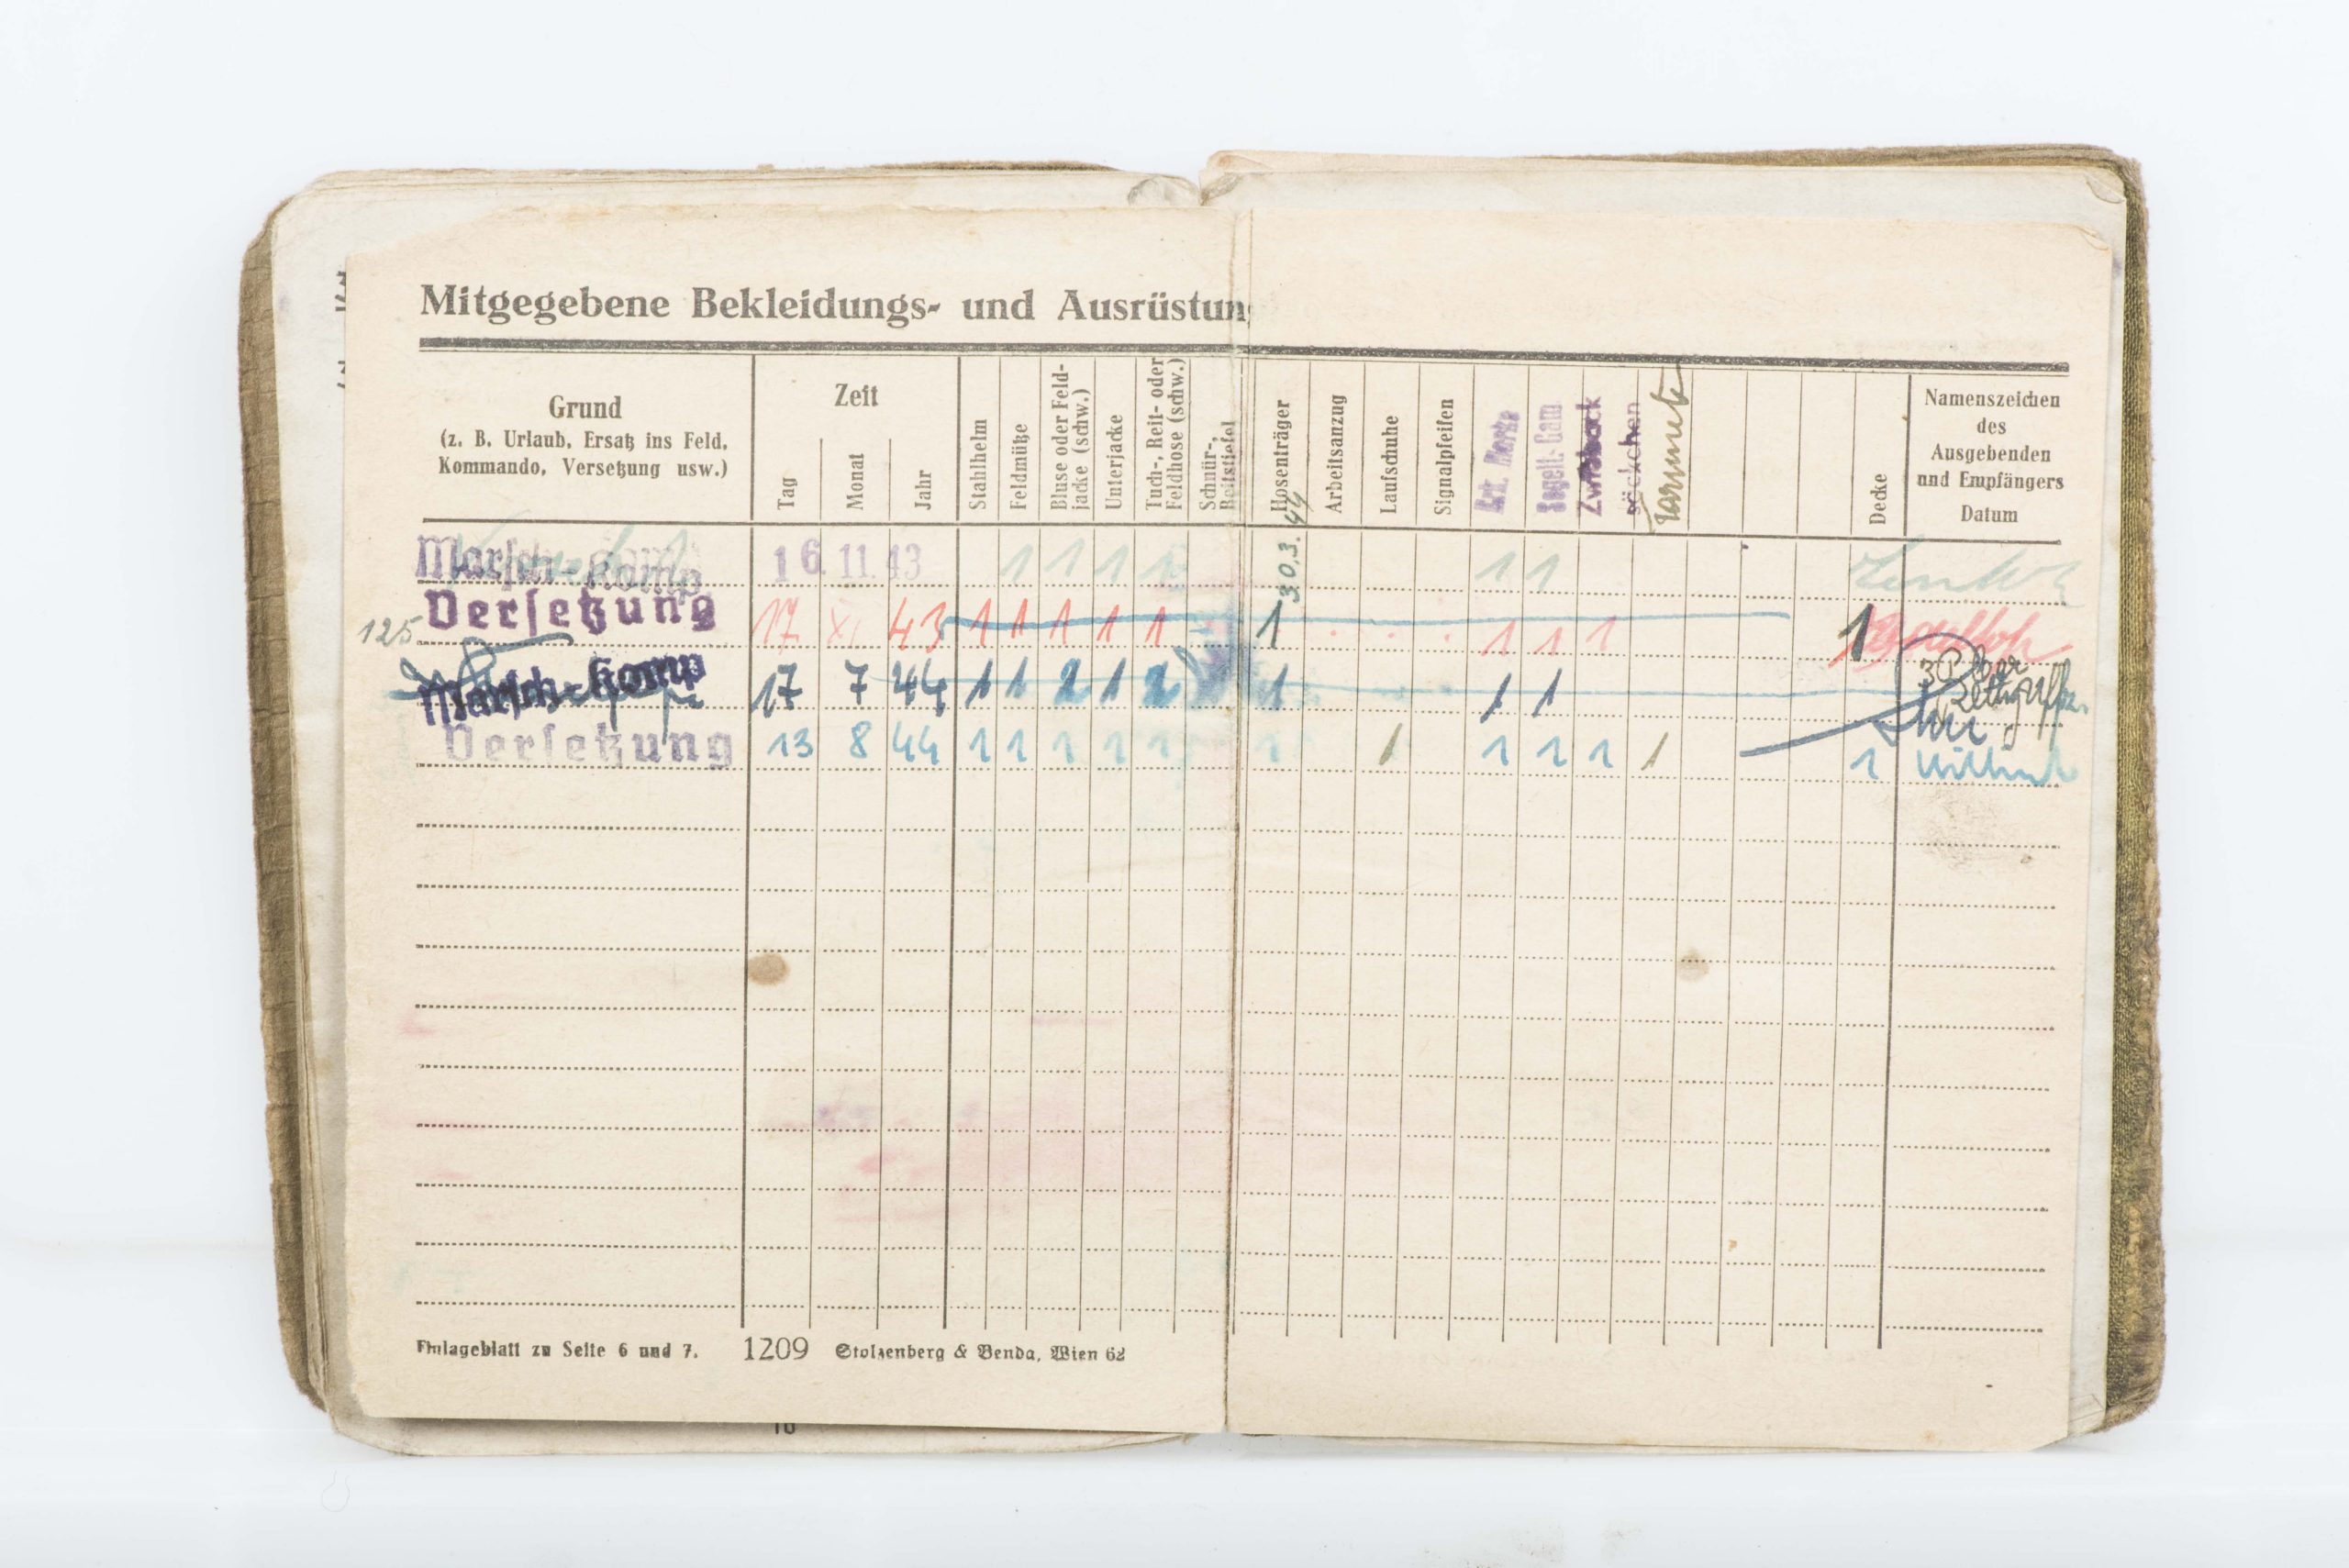 Mitgegebene Bekleidungs- und Ausrüstun
Grund
(z. B. Urlaub, Ersatz ins Feld,
Kommando, Versetzung usw.)
Zeit
Tag
Monat
Jahr
Stahlhelm
Feldmütze
Bluse oder Feld-
jacke (schw.)
Unterjacke
Tuch-, Reit- oder
Feldhose (schw.)
Schnür-,
Reitstiefel
Hosenträger
Arbeitsanzug
Laufschuhe
Signalpfeifen
Erk. Marke
Zwieback
säckchen
Decke
Namenszeichen
des
Ausgebenden
und Empfängers
Datum
Marsch-Komp 16.11.43 1 1 1 1 30.3.44 1 1
125 Versetzung 17 XI 43 1 1 1 1 1 1 1 1 1 1
Marsch-Komp 17 7 44 1 1 2 1 2 1 1 1
Versetzung 13 8 44 1 1 1 1 1 1 1 1 1 1 1 1
Einlageblatt zu Seite 6 und 7. 1209 Stolzenberg & Benda, Wien 62